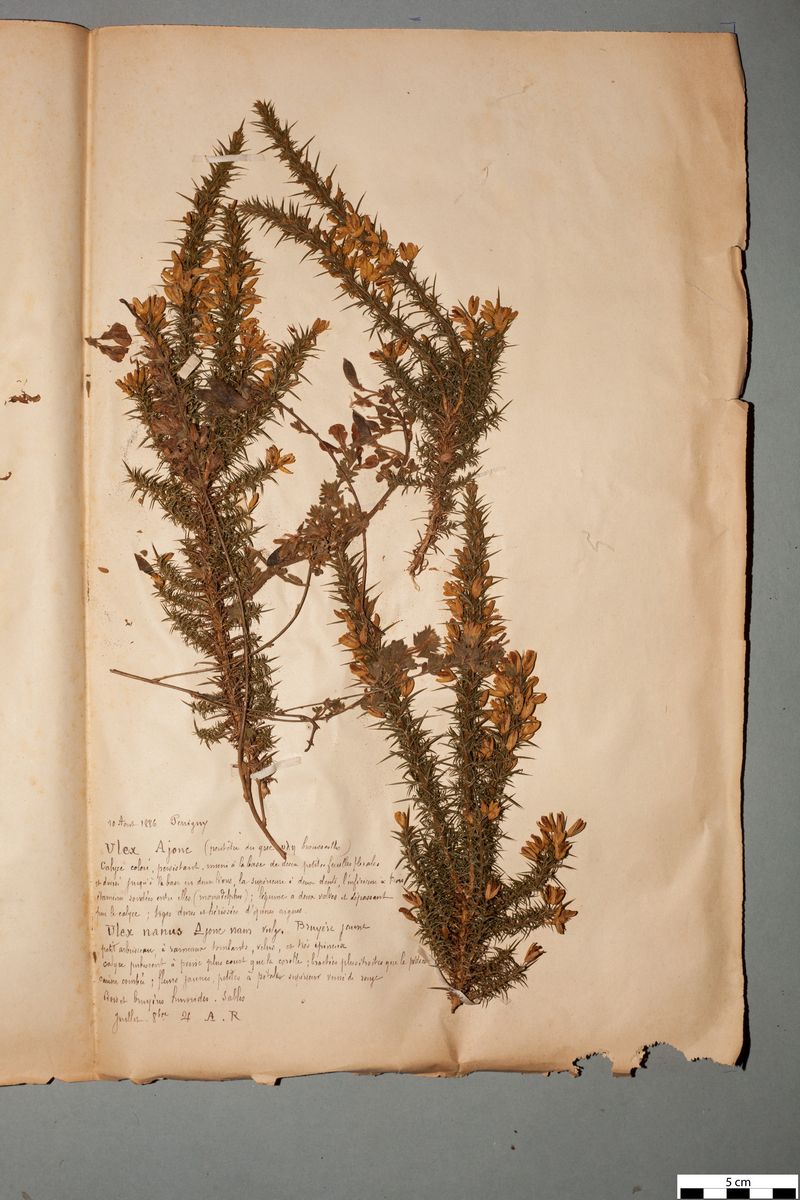 10 Aout 1886 Perrigny
Ulex Ajonc (
Calyce coloré, persistant, muni à la base de deux petites feuilles florales
et divisé jusqu'à la base en deux lèvres, la supérieure à deux dents, l'inférieure à trois
étamines soudées entre elles (monadelphes); légume à deux valves et dépassant
peu le calyce; tiges dures et hérissées d'épines aigues.
Ulex nanus Ajonc nain vulg. Bruyère jaune
petit arbrisseau à rameaux tombants, velus, et très épineux
calyce pubescent à peine plus court que la corolle; bractées plus étroites que le pédicelle
; fleurs jaunes, petites à pétale supérieur veiné de rouge
Bois et bruyères humides. Sables
Juillet. 8bre ♃ A. R
5 cm